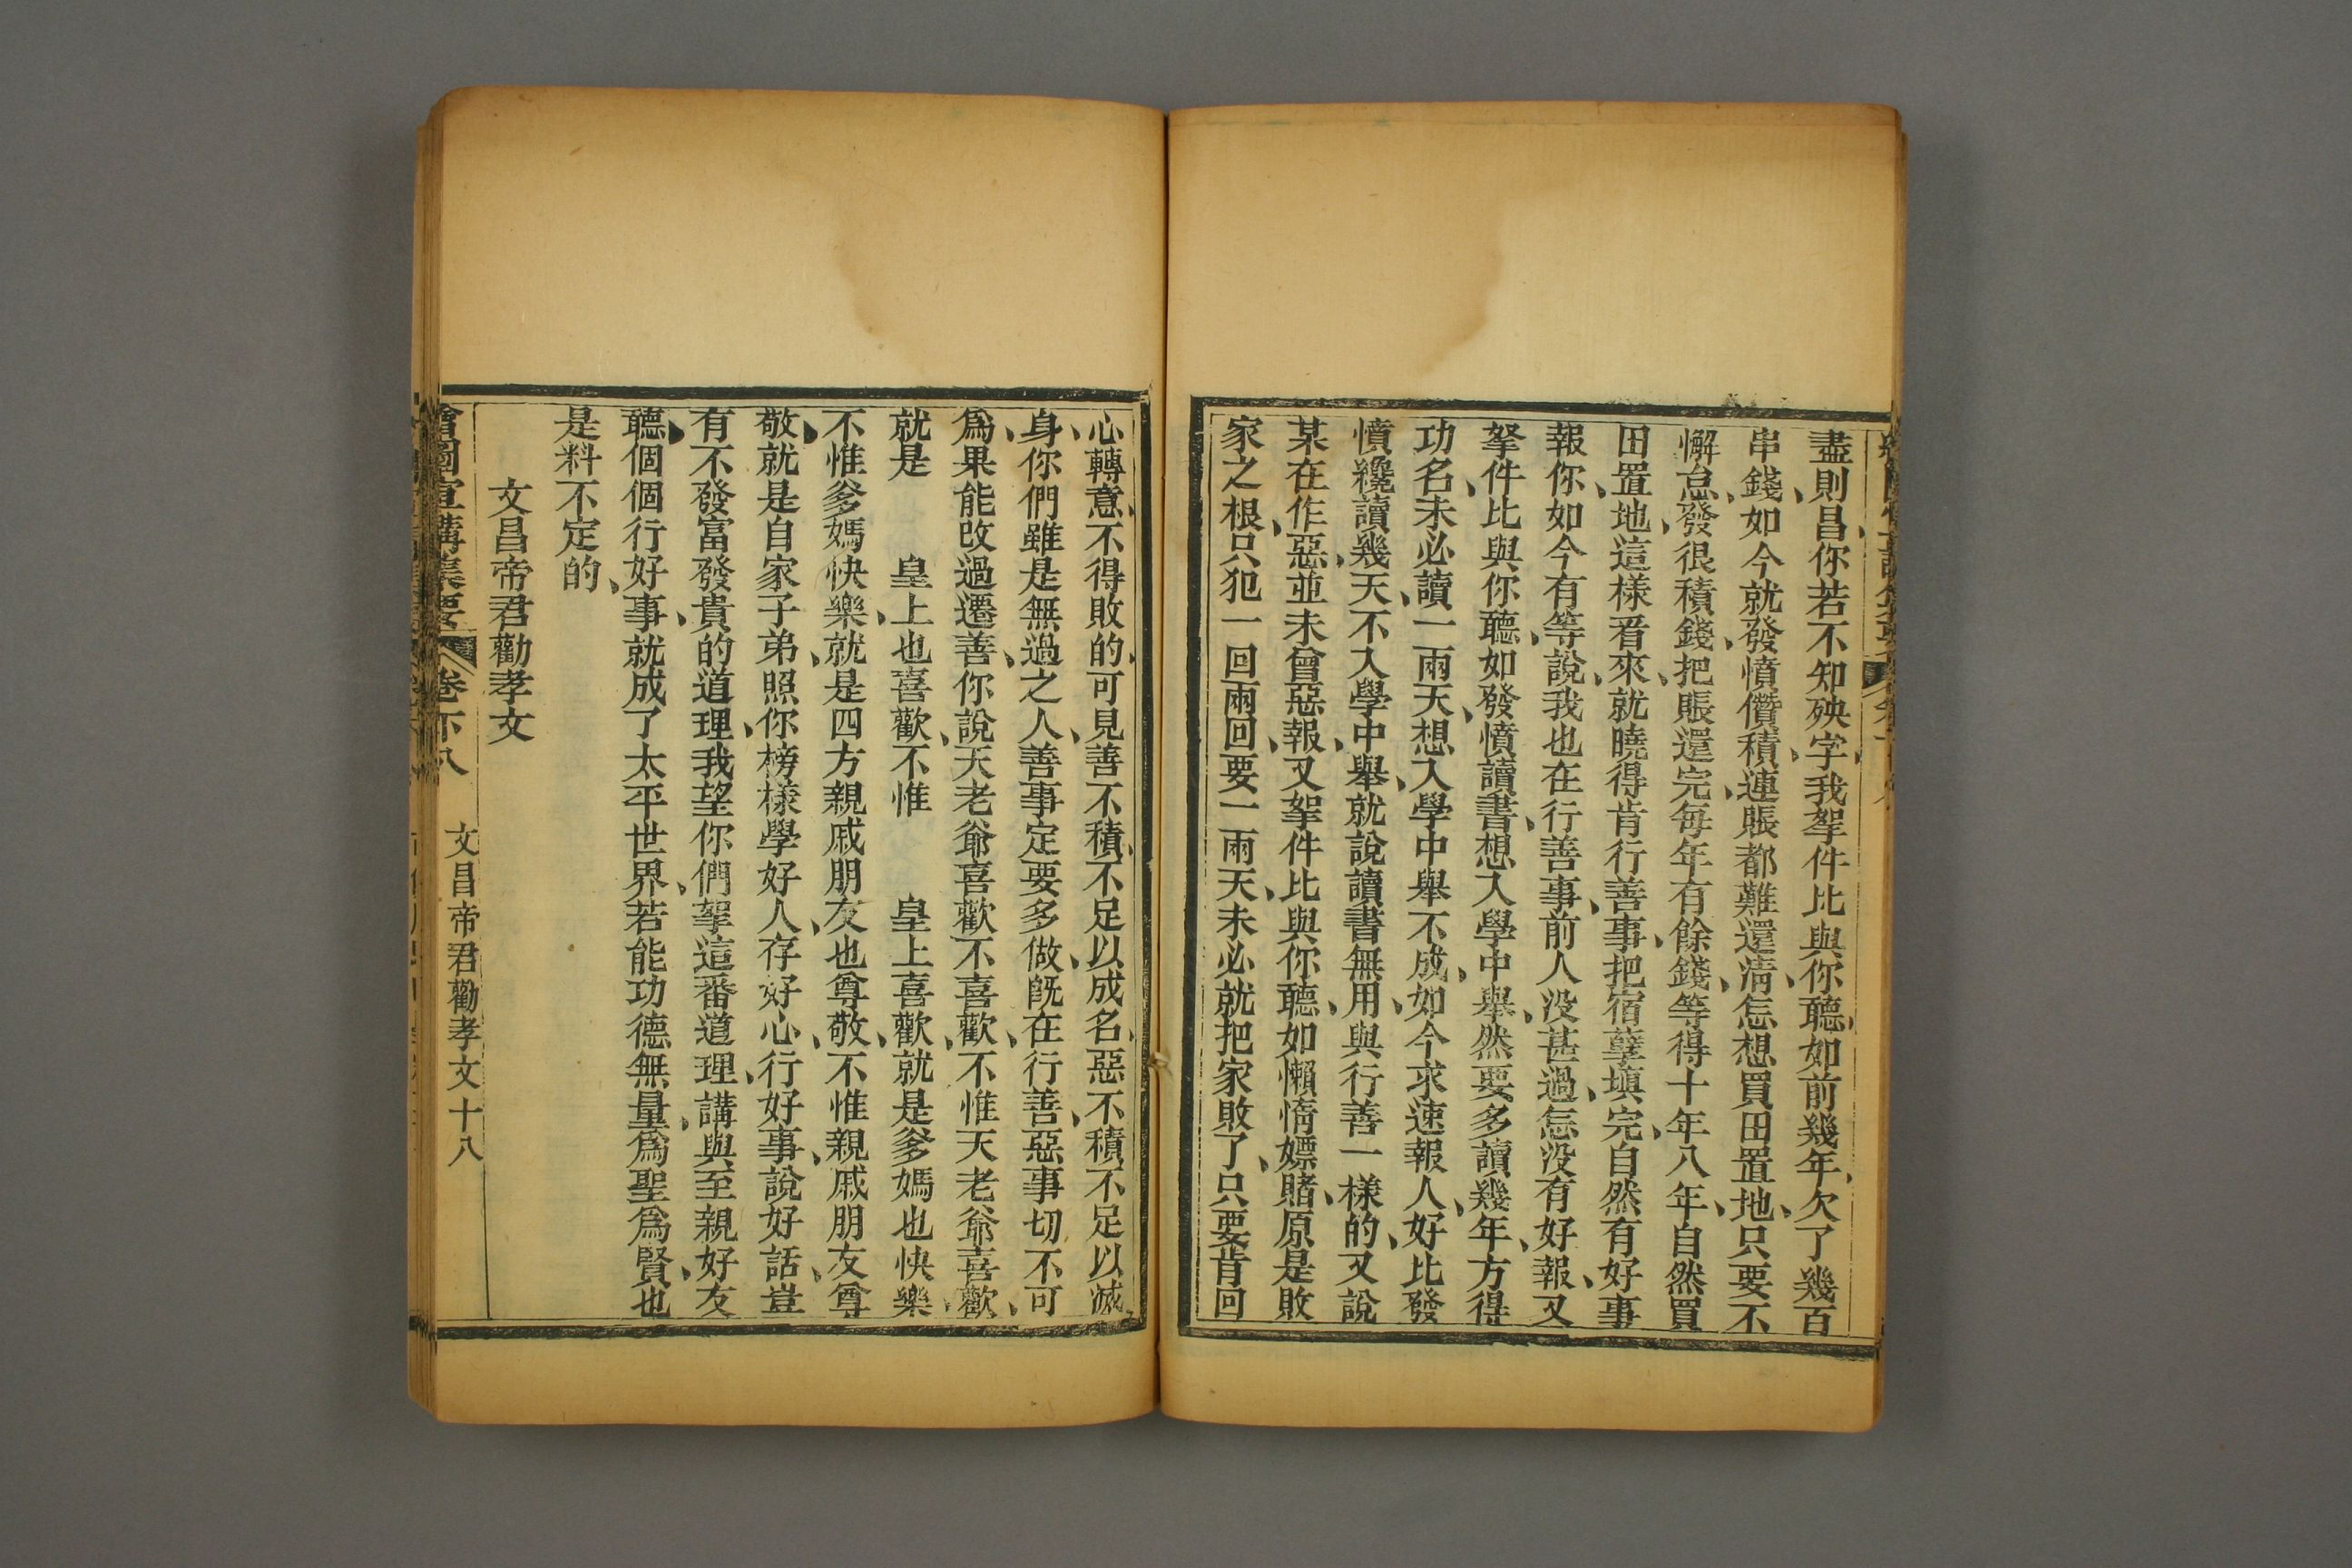 盡則昌你若不知殃字我拏件比與你聽如前幾年欠了幾百
串錢如今就發憤儹積連賬都難還清怎想買田置地只要不
懈怠發很積錢把賬還完每年有餘錢等得十年八年自然買
田置地這樣看來就曉得肯行善事把宿孽塡完自然有好事
報你如今有等說我也在行善事前人没甚過怎没有好報又
拏件比與你聽如發憤讀書想入學中舉然要多讀幾年方得
功名未必讀一兩天想入學中舉不成如今求速報人好比發
憤纔讀幾天不入學中舉就說讀書無用與行善一樣的又說
某在作惡並未曾惡報又拏件比與你聽如懶惰嫖賭原是敗
家之根只犯一回兩回要一兩天未必就把家敗了只要肯回
心轉意不得敗的可見善不積不足以成名惡不積不足以滅
身你們雖是無過之人善事定要多做旣在行善惡事切不可
爲果能改過遷善你說天老爺喜歡不喜歡不惟天老爺喜歡
就是 皇上也喜歡不惟 皇上喜歡就是爹媽也快樂
不惟爹媽快樂就是四方親戚朋友也尊敬不惟親戚朋友尊
敬就是自家子弟照你榜樣學好人存好心行好事說好話豈
有不發富發貴的道理我望你們拏這番道理講與至親好友
聽個個行好事就成了太平世界若能功德無量爲聖爲賢也
是料不定的
文昌帝君勸孝文
繪圖宣講集要 卷下八 文昌帝君勸孝文十八